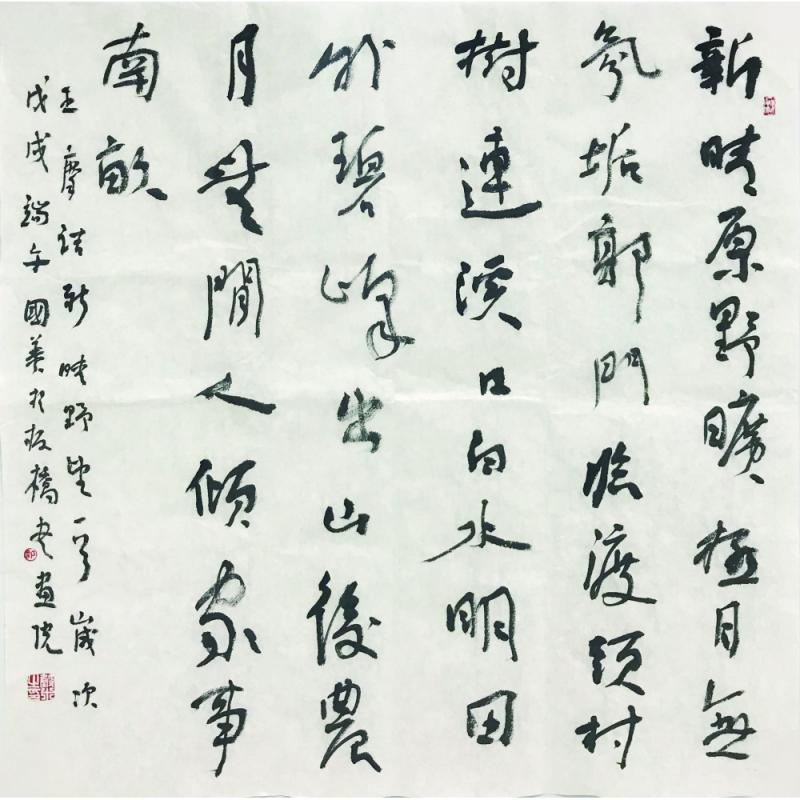 新晴原野曠極目無
氛垢郭門臨渡頭村
樹連溪口白水明田
外碧峰出山後農
月無閒人傾家事
南畝
王摩詰新晴野望一首歲次
戊戌端午國美於板橋書畫院